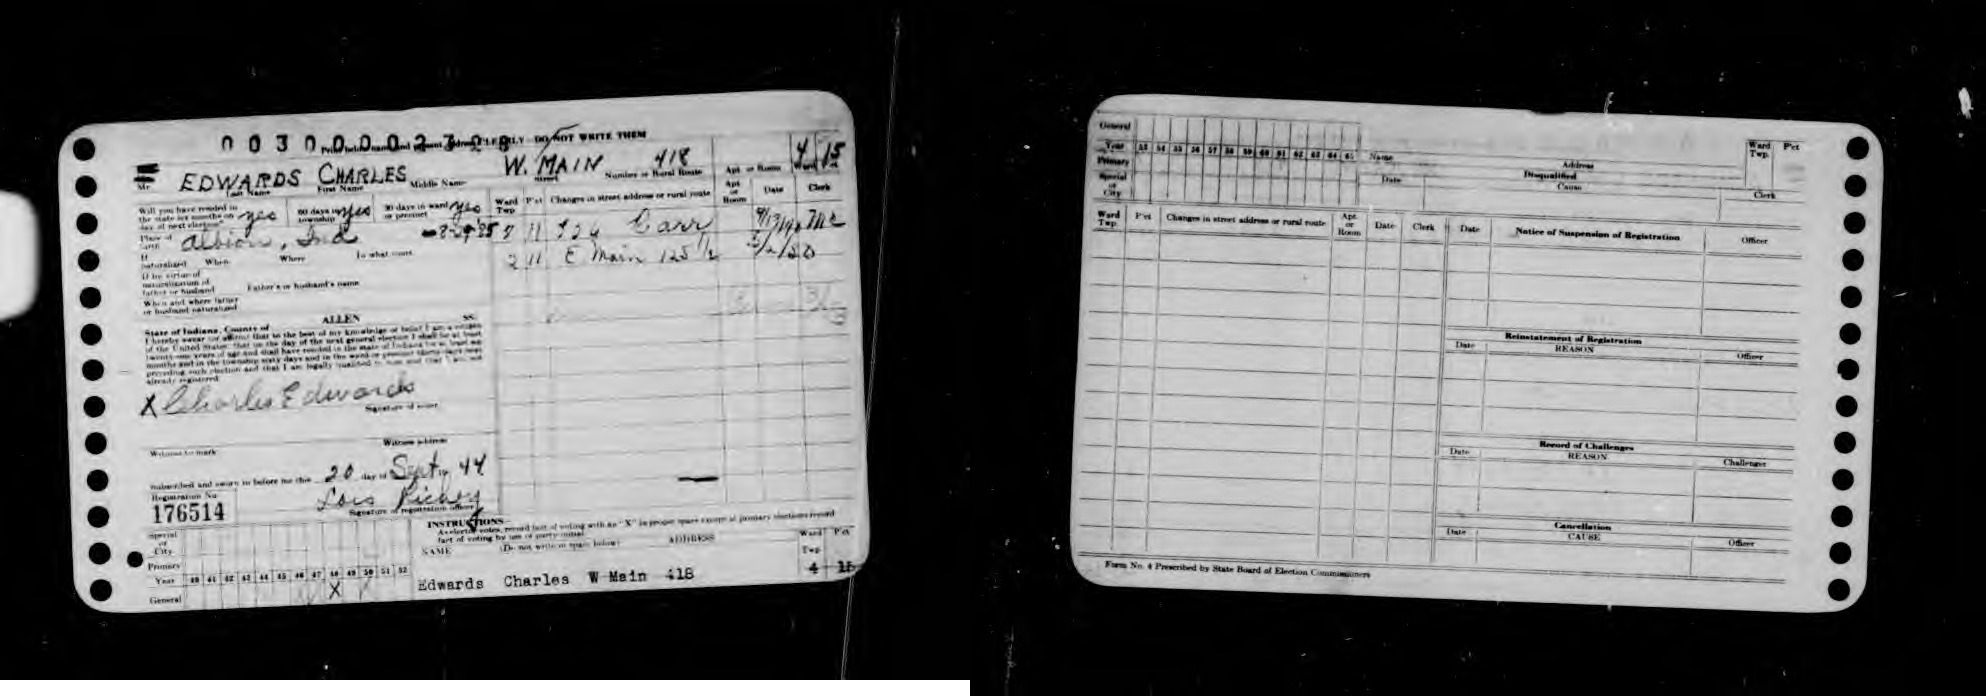 0 0 3 0 0 0 0 0 2 7 0 8
DO NOT WRITE THEM
Mr. EDWARDS CHARLES W. MAIN 418 4 15
Last Name First Name Middle Name Street Number or Rural Route Apt. or Room Ward
Will you have resided in the state six months on day of next election? yes 60 days in township yes 30 days in ward or precinct yes
Ward Twp P'ct Changes in street address or rural route Apt. or Room Date Clerk
Place of birth Albion, Ind
11 Carr
2 11 E Main 125 1/2
If naturalized When Where In what court
If by virtue of naturalization of father or husband Father's or husband's name
When and where father or husband naturalized
State of Indiana, County of ALLEN SS.
I hereby swear (or affirm) that to the best of my knowledge or belief I am a citizen
of the United States; that on the day of the next general election I shall be at least
twenty-one years of age and shall have resided in the state of Indiana for at least six
months and in the township sixty days and in the ward or precinct thirty days next
preceding such election and that I am legally qualified to vote and that I am not
already registered.
X Charles Edwards
Signature of voter
Witness address
Witness to mark
Subscribed and sworn to before me this 20 day of Sept 19 44
Lois Richey
Signature of registration officer
Registration No.
176514
INSTRUCTIONS
As elector votes, record fact of voting with an "X" in proper space except at primary elections record
fact of voting by use of party initial.
NAME (Do not write in space below) ADDRESS Ward Twp. P'ct
Special or City
Primary
Year 40 41 42 43 44 45 46 47 48 49 50 51 52
General X
Edwards Charles W Main 418 4 15
General
Year 53 54 55 56 57 58 59 60 61 62 63 64 65
Primary
Special or City
Name Address Ward Twp. P'ct
Disqualified
Date Cause Clerk
Ward Twp. P'ct Changes in street address or rural route Apt. or Room Date Clerk
Date Notice of Suspension of Registration Officer
Reinstatement of Registration
Date REASON Officer
Record of Challenges
Date REASON Challenger
Cancellation
Date CAUSE Officer
Form No. 4 Prescribed by State Board of Election Commissioners